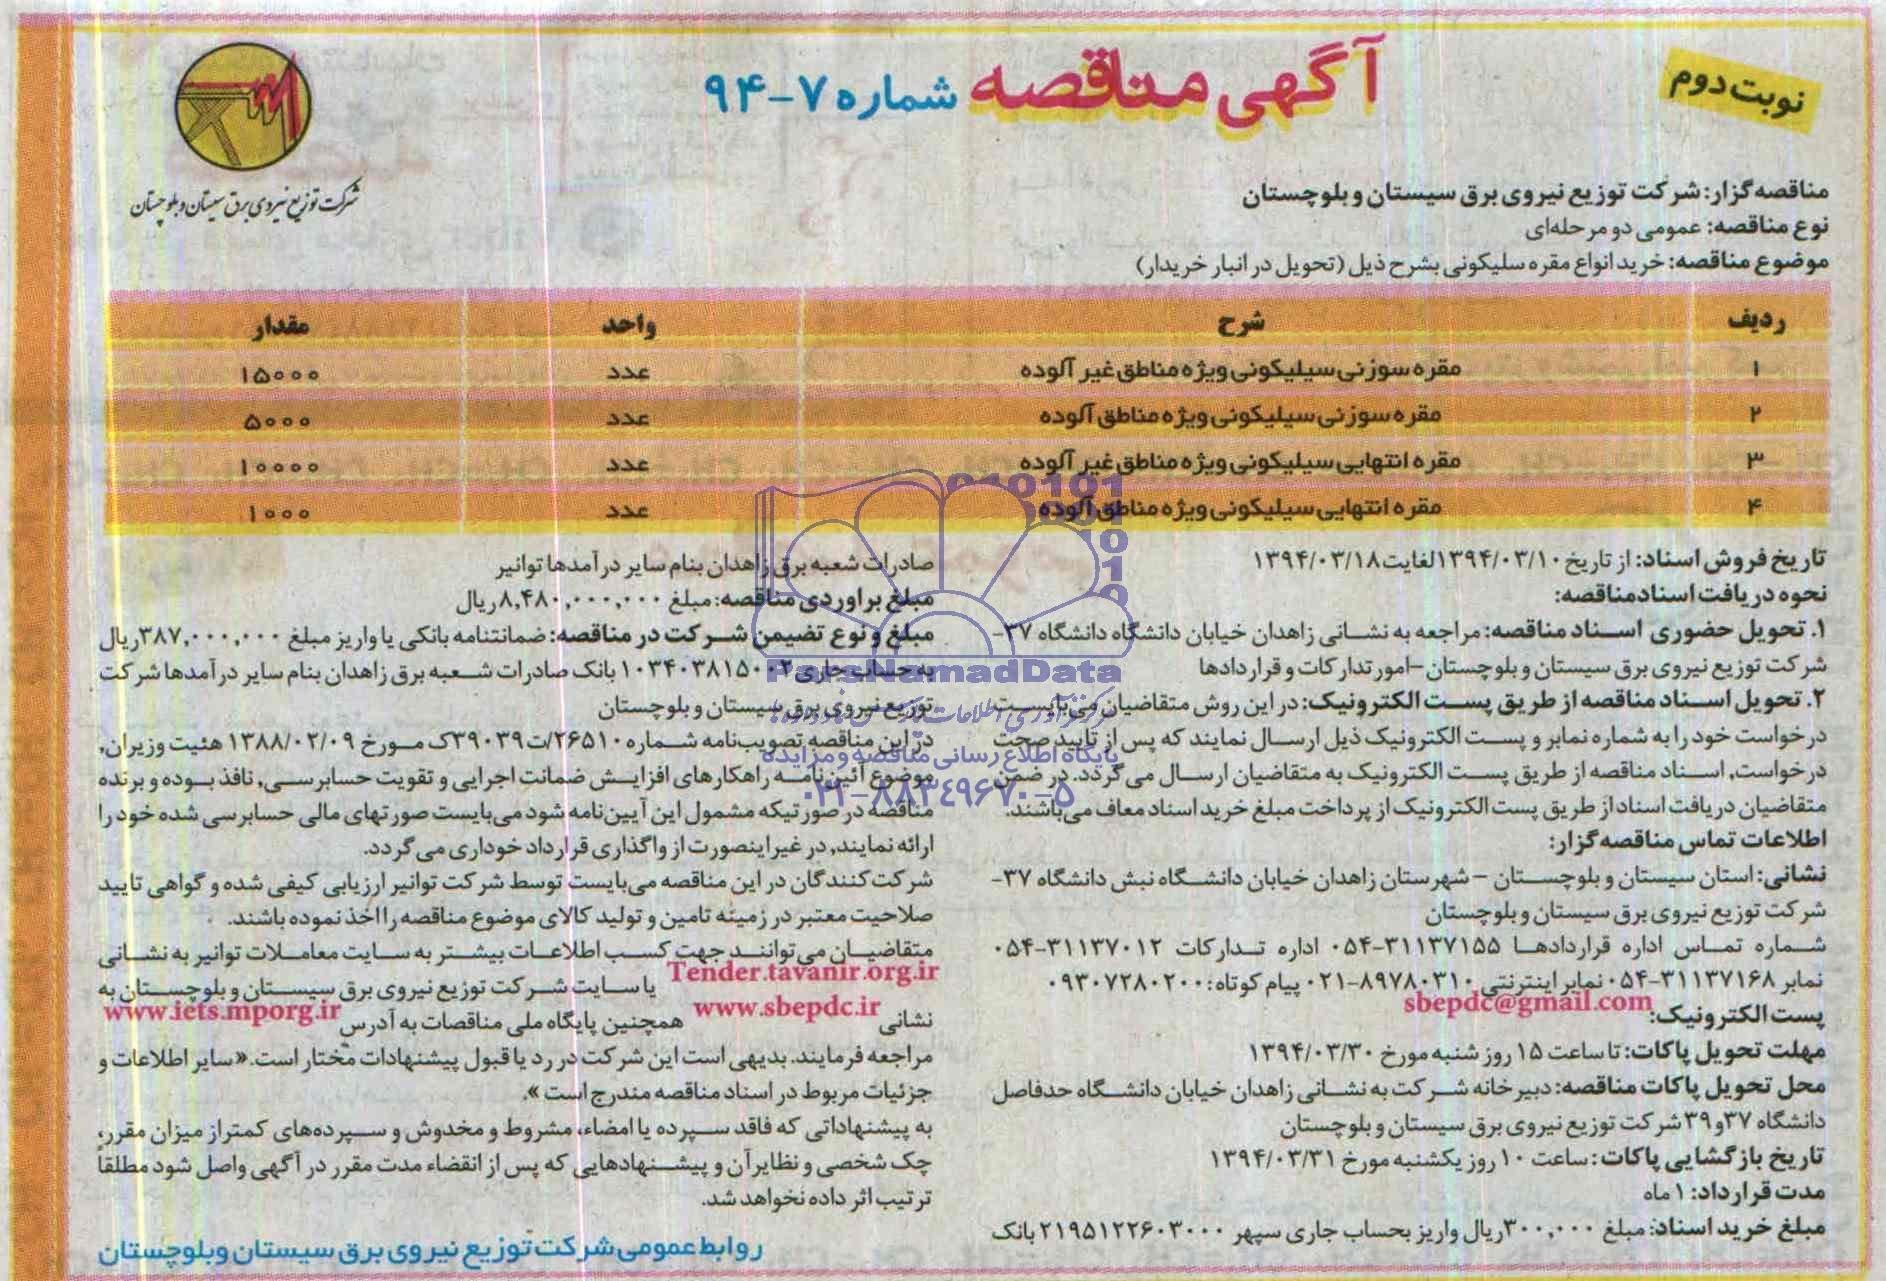 نوبت دوم
آگهی مناقصه شماره ۷-۹۴
شرکت توزیع نیروی برق سیستان و بلوچستان
مناقصه گزار: شرکت توزیع نیروی برق سیستان و بلوچستان
نوع مناقصه: عمومی دو مرحله‌ای
موضوع مناقصه: خرید انواع مقره سلیکونی بشرح ذیل (تحویل در انبار خریدار)
ردیف شرح واحد مقدار
۱ مقره سوزنی سیلیکونی ویژه مناطق غیر آلوده عدد ۱۵۰۰۰
۲ مقره سوزنی سیلیکونی ویژه مناطق آلوده عدد ۵۰۰۰
۳ مقره انتهایی سیلیکونی ویژه مناطق غیر آلوده عدد ۱۰۰۰۰
۴ مقره انتهایی سیلیکونی ویژه مناطق آلوده عدد ۱۰۰۰
تاریخ فروش اسناد: از تاریخ ۱۳۹۴/۰۳/۱۰ لغایت ۱۳۹۴/۰۳/۱۸
نحوه دریافت اسناد مناقصه:
۱. تحویل حضوری اسناد مناقصه: مراجعه به نشانی زاهدان خیابان دانشگاه دانشگاه ۳۷-
شرکت توزیع نیروی برق سیستان و بلوچستان -امور تدارکات و قراردادها
۲. تحویل اسناد مناقصه از طریق پست الکترونیک: در این روش متقاضیان می‌بایست
درخواست خود را به شماره نمابر و پست الکترونیک ذیل ارسال نمایند که پس از تایید صحت
درخواست, اسناد مناقصه از طریق پست الکترونیک به متقاضیان ارسال می گردد. در ضمن
متقاضیان دریافت اسناد از طریق پست الکترونیک از پرداخت مبلغ خرید اسناد معاف می‌باشند.
اطلاعات تماس مناقصه گزار:
نشانی: استان سیستان و بلوچستان - شهرستان زاهدان خیابان دانشگاه نبش دانشگاه ۳۷-
شرکت توزیع نیروی برق سیستان و بلوچستان
شماره تماس اداره قراردادها ۳۱۱۳۷۱۵۵-۰۵۴ اداره تدارکات ۳۱۱۳۷۰۱۲-۰۵۴
نمابر ۳۱۱۳۷۱۶۸-۰۵۴ نمابر اینترنتی ۸۹۷۸۰۳۱۰-۰۲۱ پیام کوتاه: ۰۹۳۰۷۲۸۰۲۰۰
پست الکترونیک: sbepdc@gmail.com
مهلت تحویل پاکات: تا ساعت ۱۵ روز شنبه مورخ ۱۳۹۴/۰۳/۳۰
محل تحویل پاکات مناقصه: دبیرخانه شرکت به نشانی زاهدان خیابان دانشگاه حدفاصل
دانشگاه ۳۷ و ۳۹ شرکت توزیع نیروی برق سیستان و بلوچستان
تاریخ بازگشایی پاکات: ساعت ۱۰ روز یکشنبه مورخ ۱۳۹۴/۰۳/۳۱
مدت قرارداد: ۱ ماه
مبلغ خرید اسناد: مبلغ ۳۰۰,۰۰۰ ریال واریز بحساب جاری سپهر ۲۱۹۵۱۲۲۶۰۳۰۰۰ بانک
صادرات شعبه برق زاهدان بنام سایر درآمدها توانیر
مبلغ براوردی مناقصه: مبلغ ۸,۴۸۰,۰۰۰,۰۰۰ ریال
مبلغ و نوع تضیمن شرکت در مناقصه: ضمانتنامه بانکی یا واریز مبلغ ۳۸۷,۰۰۰,۰۰۰ ریال
به حساب جاری ۱۰۳۴۰۳۸۱۵۰۰۲ بانک صادرات شعبه برق زاهدان بنام سایر درآمدها شرکت
توزیع نیروی برق سیستان و بلوچستان
در این مناقصه تصویب‌نامه شماره ۲۶۵۱۰/ت۳۹۰۳۹ک مورخ ۱۳۸۸/۰۲/۰۹ هئیت وزیران,
موضوع آئین‌نامه راهکارهای افزایش ضمانت اجرایی و تقویت حسابرسی, نافذ بوده و برنده
مناقصه در صورتیکه مشمول این آیین‌نامه شود می‌بایست صورتهای مالی حسابرسی شده خود را
ارائه نمایند, در غیر اینصورت از واگذاری قرارداد خوداری می گردد.
شرکت کنندگان در این مناقصه می‌بایست توسط شرکت توانیر ارزیابی کیفی شده و گواهی تایید
صلاحیت معتبر در زمینه تامین و تولید کالای موضوع مناقصه را اخذ نموده باشند.
متقاضیان می‌توانند جهت کسب اطلاعات بیشتر به سایت معاملات توانیر به نشانی
Tender.tavanir.org.ir یا سایت شرکت توزیع نیروی برق سیستان و بلوچستان به
نشانی www.sbepdc.ir همچنین پایگاه ملی مناقصات به آدرس www.iets.mporg.ir
مراجعه فرمایند. بدیهی است این شرکت در رد یا قبول پیشنهادات مختار است. «سایر اطلاعات و
جزئیات مربوط در اسناد مناقصه مندرج است».
به پیشنهاداتی که فاقد سپرده یا امضاء، مشروط و مخدوش و سپرده‌های کمتر از میزان مقرر,
چک شخصی و نظایر آن و پیشنهادهایی که پس از انقضاء مدت مقرر در آگهی واصل شود مطلقاً
ترتیب اثر داده نخواهد شد.
روابط عمومی شرکت توزیع نیروی برق سیستان و بلوچستان
ParsNamadData
پایگاه اطلاع رسانی مناقصه و مزایده
۰۲۱-۸۸۳۴۹۶۷۰-۵